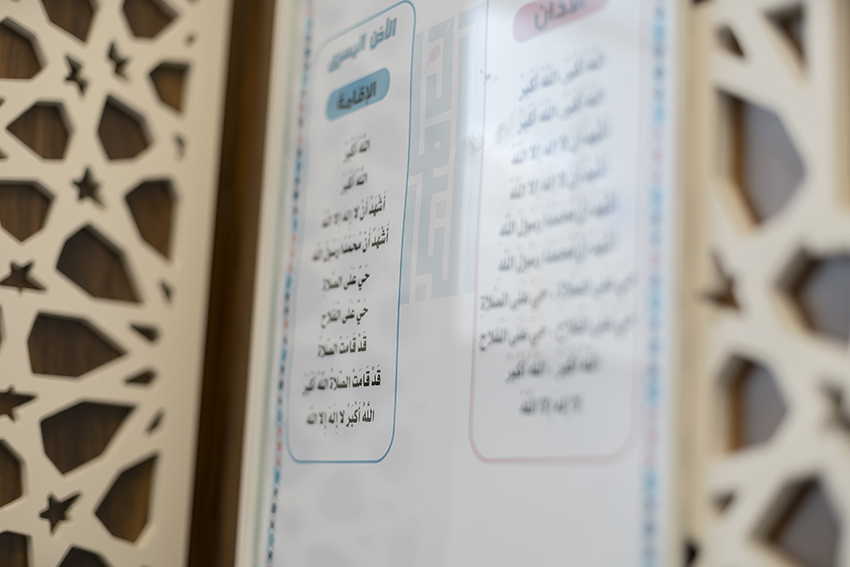 الأذان
الله أكبر، الله أكبر
الله أكبر، الله أكبر
أشهد أن لا إله إلا الله
أشهد أن لا إله إلا الله
أشهد أن محمدا رسول الله
أشهد أن محمدا رسول الله
حي على الصلاة - حي على الصلاة
حي على الفلاح - حي على الفلاح
الله أكبر، الله أكبر
لا إله إلا الله
الأذن اليسرى
الإقامة
اللهُ أكبَرُ
اللهُ أكبَرُ
أَشْهَدُ أَنْ لا إله إلا الله
أَشْهَدُ أَنّ مُحَمَّدًا رسول الله
حَيّ على الصلاة
حَيّ على الفلاح
قَدْ قامَتْ الصلاة
قَدْ قامَتْ الصلاةُ اللهُ أكبَرُ
اللَّهُ أكْبَرُ لا إله إلا الله